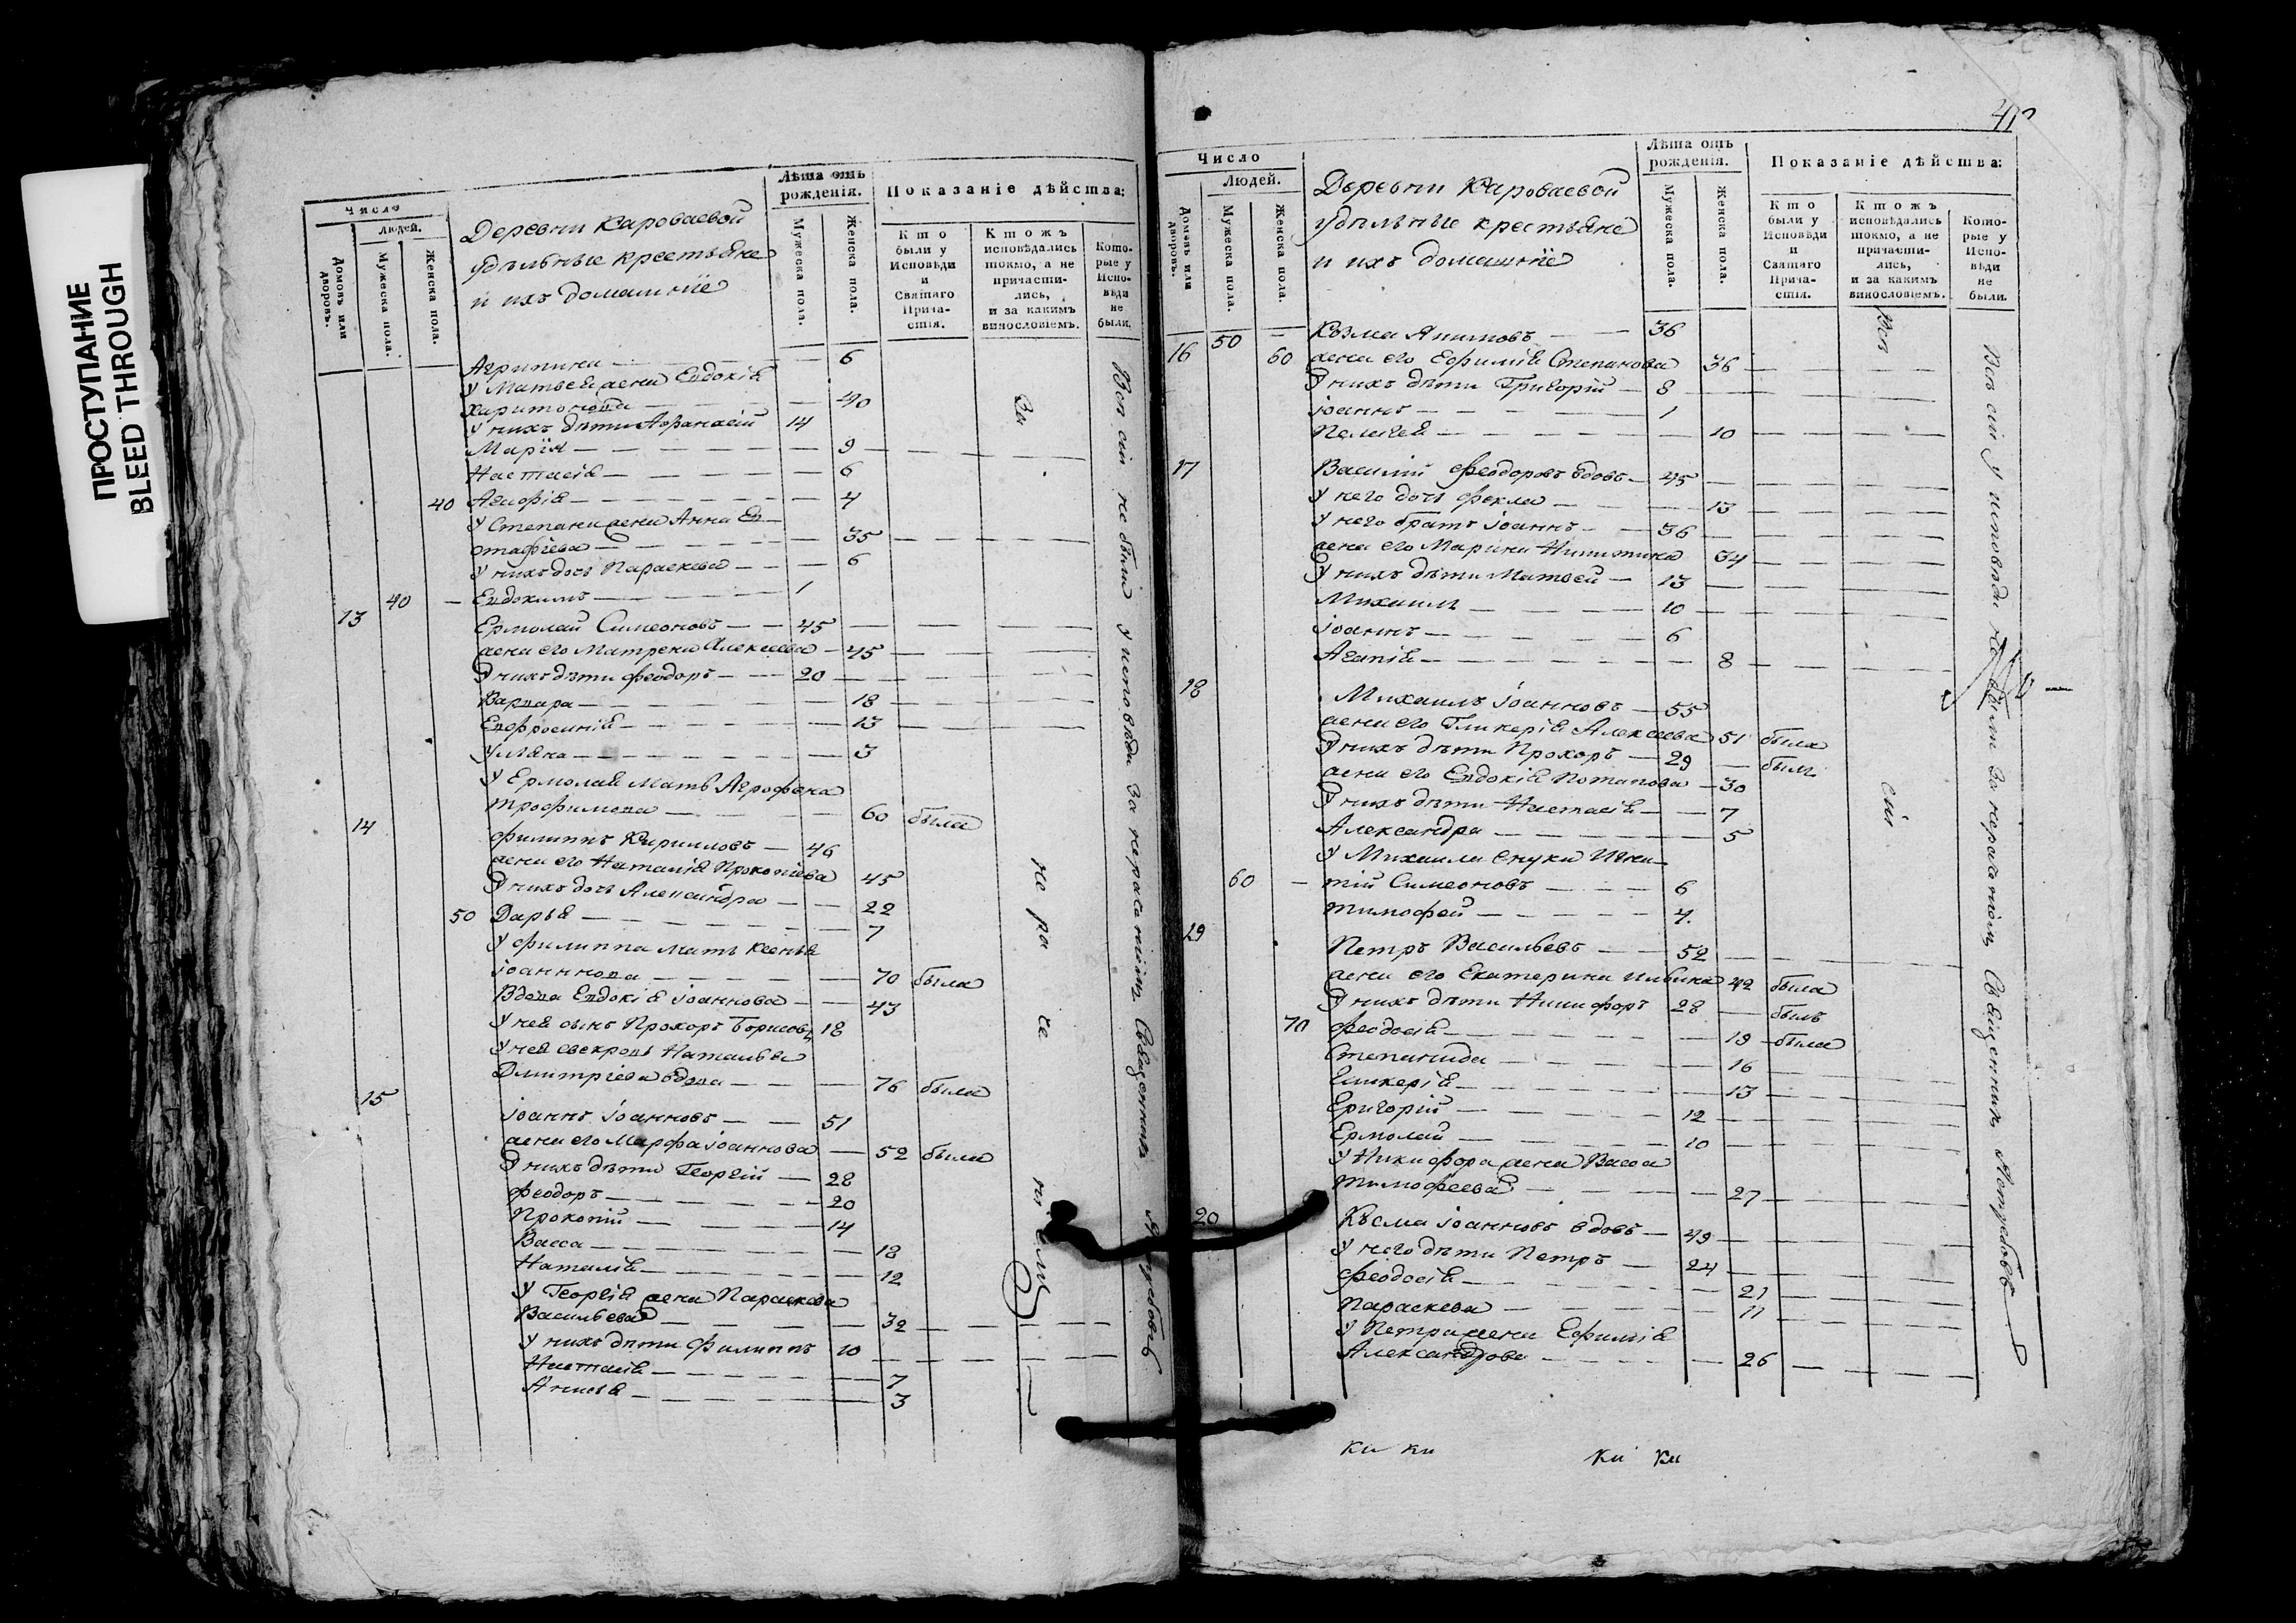 ПРОСТУПАНИЕ
BLEED THROUGH
Число
людей.
Домовъ или дворовъ.
Мужеска пола.
Женска пола.
Деревни Кароваевой
удѣльные крестьяне
и ихъ домашніе
Лѣта отъ рожденія.
Мужеска пола.
Женска пола.
Показаніе дѣйства:
Кто были у Исповѣди и Святаго Причастія.
Ктожъ исповѣдались токмо, а не причастились, и за какимъ винословіемъ.
Которые у Исповѣди не были.
Агрипина — 6
У Матвея жена Евдокія
Харитонова — 40
У нихъ дѣти Афанасій 14
Марія — 9
Настасія — 6
40 Агафія — 4
У Степана жена Анна Ев-
стафіева — 35
У нихъ дочь Параскева — 6
40 — Евдокимъ — 1
13 Ермолай Симеоновъ — 45
жена его Матрена Алексеева — 45
У нихъ дѣти Феодоръ — 20
Варвара — 18
Евфросинія — 13
Уляна — 3
У Ермолая мать Агрофена
Трофимова — 60 была
14 Филиппъ Кирилловъ — 46
жена его Наталія Прокопіева 45
У нихъ дочь Александра — 22
50 Дарья — 7
У Филиппа мать Ксенья
Іоаннова — 70 была
Вдова Евдокія Іоаннова — 43
У ней сынъ Прохоръ Борисовъ 18
У ней свекровь Наталья
Дмитріева вдова — 76 была
15 Іоаннъ Іоанновъ — 51
жена его Марфа Іоаннова — 52 была
У нихъ дѣти Георгій — 28
Феодоръ — 20
Прокопій — 14
Васса — 18
Наталія — 12
У Георгія жена Параскева
Васильева — 32
У нихъ дѣти Филиппъ 10
Настасія — 7
Анисья — 3
За не ра че ні емъ
Всѣ сіи не были у исповѣди за нераченіемъ Священникъ
41
Число
Людей.
Домовъ или дворовъ.
Мужеска пола.
Женска пола.
Деревни Кароваевой
удѣльные крестьяне
и ихъ домашніе
Лѣта отъ рожденія.
Мужеска пола.
Женска пола.
Показаніе дѣйства:
Кто были у Исповѣди и Святаго Причастія.
Ктожъ исповѣдались токмо, а не причастились, и за какимъ винословіемъ.
Которые у Исповѣди не были.
16 50 — Козма Акимовъ — 36
60 жена его Ефимія Степанова 36
У нихъ дѣти Григорій — 8
Іоаннъ — 1
Пелагея — 10
17 Василій Феодоровъ вдовъ — 45
У него дочь Фекла — 13
У него братъ Іоаннъ — 36
жена его Марина Никитина 34
У нихъ дѣти Матвей — 13
Михаилъ — 10
Іоаннъ — 6
Агапія — 8
18 Михаилъ Іоанновъ — 55
жена его Гликерія Алексеева 51 была
У нихъ дѣти Прохоръ — 29 — былъ
жена его Евдокія Потапова — 30
У нихъ дѣти Настасія — 7
Александра — 5
У Михаила внуки Игна-
60 — тій Симеоновъ — 6
Тимофей — 4
19 Петръ Васильевъ — 52
жена его Екатерина 42 была
У нихъ дѣти Никифоръ 28 — былъ
70 Феодосія — 19 — была
Степанида — 16
Гликерія — 13
Григорій — 12
Ермолай — 10
У Никифора жена Васса
Тимофеева — 27
20 Козма Іоанновъ вдовъ — 49
У него дѣти Петръ — 24
Феодосія — 21
Параскева — 11
У Петра жена Ефимія
Александрова — 26
Всѣ сіи
Всѣ сіи у исповѣди не были за нераченіемъ Священникъ
ки ки ки ки